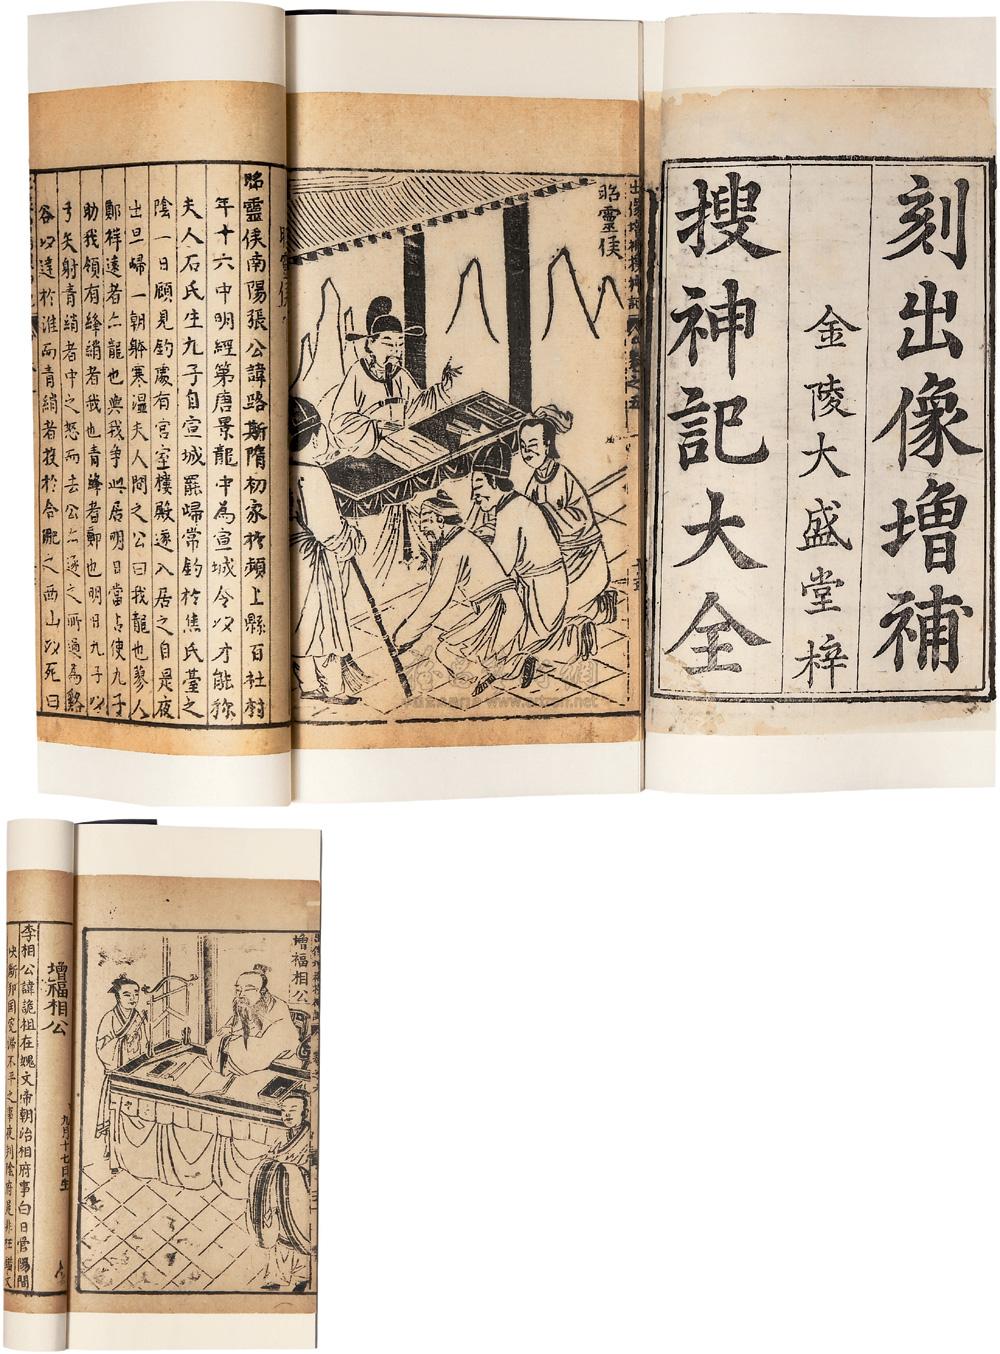 刻出像增補
金陵大盛堂梓
搜神記大全
昭靈侯
昭靈侯南陽張公諱路斯隋初家於潁上縣百社村
年十六中明經第唐景龍中為宣城令以才能称
夫人石氏生九子自宣城罷歸常釣於焦氏臺之
陰一日顧見釣處有宮室樓殿遂入居之自是夜
出旦歸一朝躰寒湿夫人問之公曰我龍也蓼人
鄭祥遠者亦龍也與我爭此居明日當占使九子
助我領有絳綃者我也青綃者鄭也明日九子以
弓矢射青綃者中之怒而去公亦逐之所過為谿
谷以達於淮而青綃者投於合肥之西山以死曰
增福相公
增福相公
九月十七日生
李相公諱詭祖在魏文帝朝治相府事白日管陽間